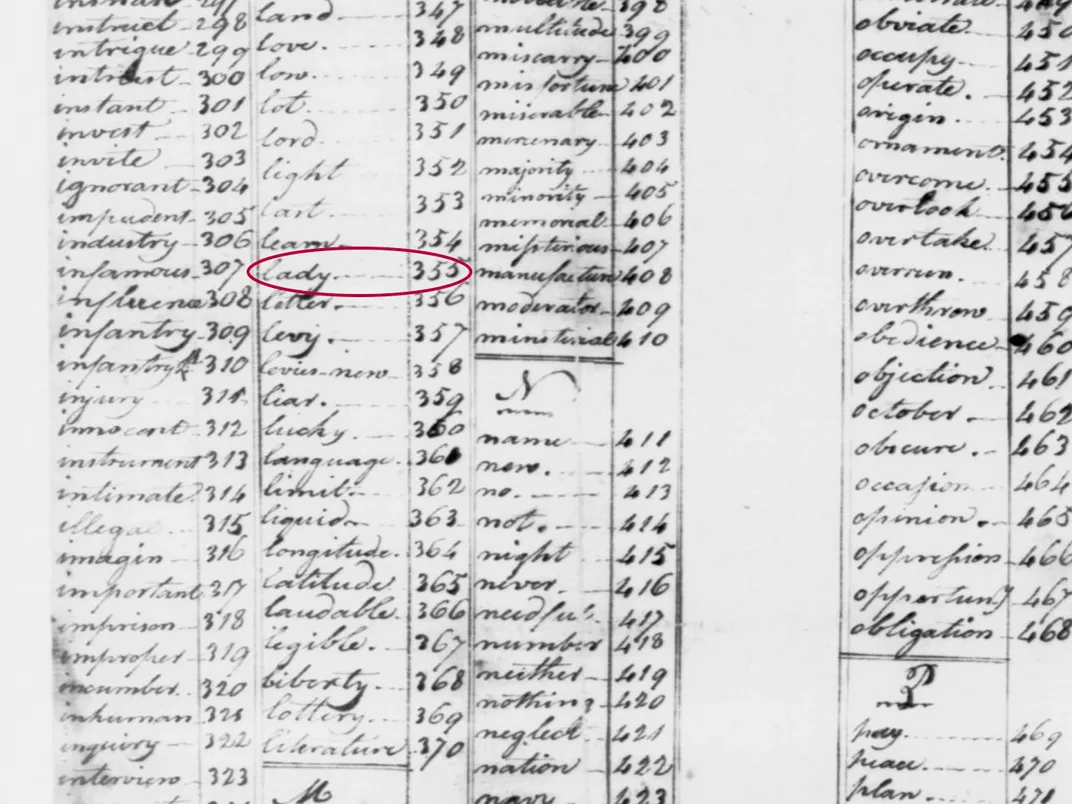 instruct 298
intrigue 299
intrust 300
instant 301
invest 302
invite 303
ignorant 304
impudent 305
industry 306
infamous 307
influence 308
infantry 309
infantry 310
injury 311
innocent 312
instrument 313
intimate 314
illegal 315
imagin 316
important 317
imprison 318
improper 319
incumber 320
inhuman 321
inquiry 322
interview 323
land 347
love 348
low 349
lot 350
lord 351
light 352
last 353
learn 354
lady 355
letter 356
levy 357
levies-new 358
liar 359
lucky 360
language 361
limit 362
liquid 363
longitude 364
latitude 365
laudable 366
legible 367
liberty 368
lottery 369
literature 370
M
398
multitude 399
miscarry 400
misfortune 401
miserable 402
mercenary 403
majority 404
minority 405
memorial 406
misterious 407
manufacture 408
moderator 409
ministerial 410
N
name 411
new 412
no 413
not 414
night 415
never 416
needful 417
number 418
neither 419
nothing 420
neglect 421
nation 422
navy 423
449
obviate 450
occupy 451
operate 452
origin 453
ornament 454
overcome 455
overlook 456
overtake 457
overrun 458
overthrow 459
obedience 460
objection 461
october 462
obscure 463
occasion 464
opinion 465
oppression 466
opportunity 467
obligation 468
P
pay 469
peace 470
plan 471